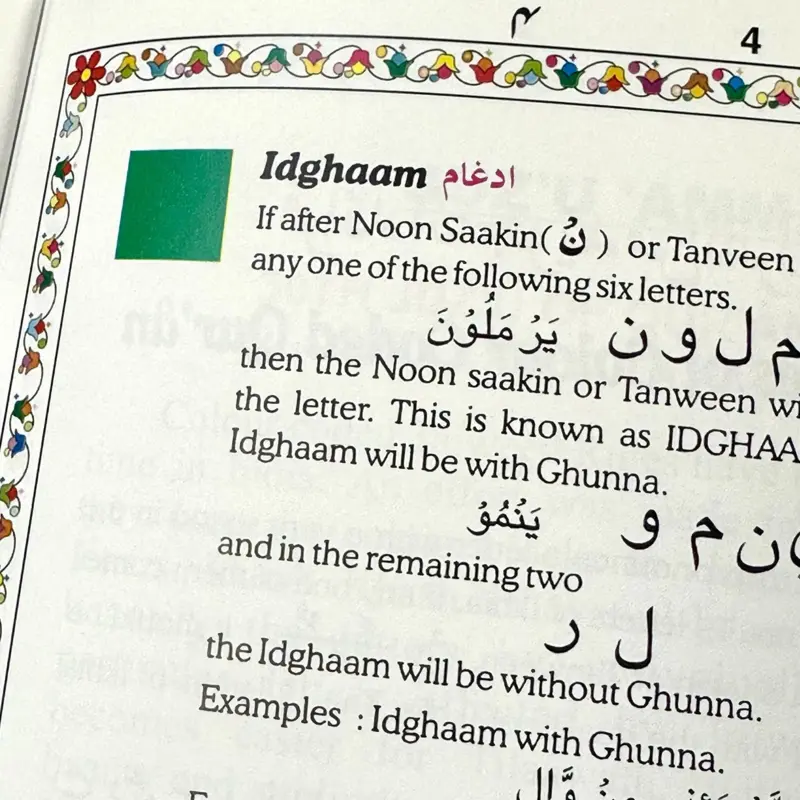 4
Idghaam ادغام
If after Noon Saakin( نُ ) or Tanveen
any one of the following six letters.
م ل و ن يَرْ مَلُوْنَ
then the Noon saakin or Tanween
the letter. This is known as
Idghaam will be with Ghunna.
ن م و يَنْمُوْ
and in the remaining two
ل ر
the Idghaam will be without Ghunna.
Examples : Idghaam with Ghunna.